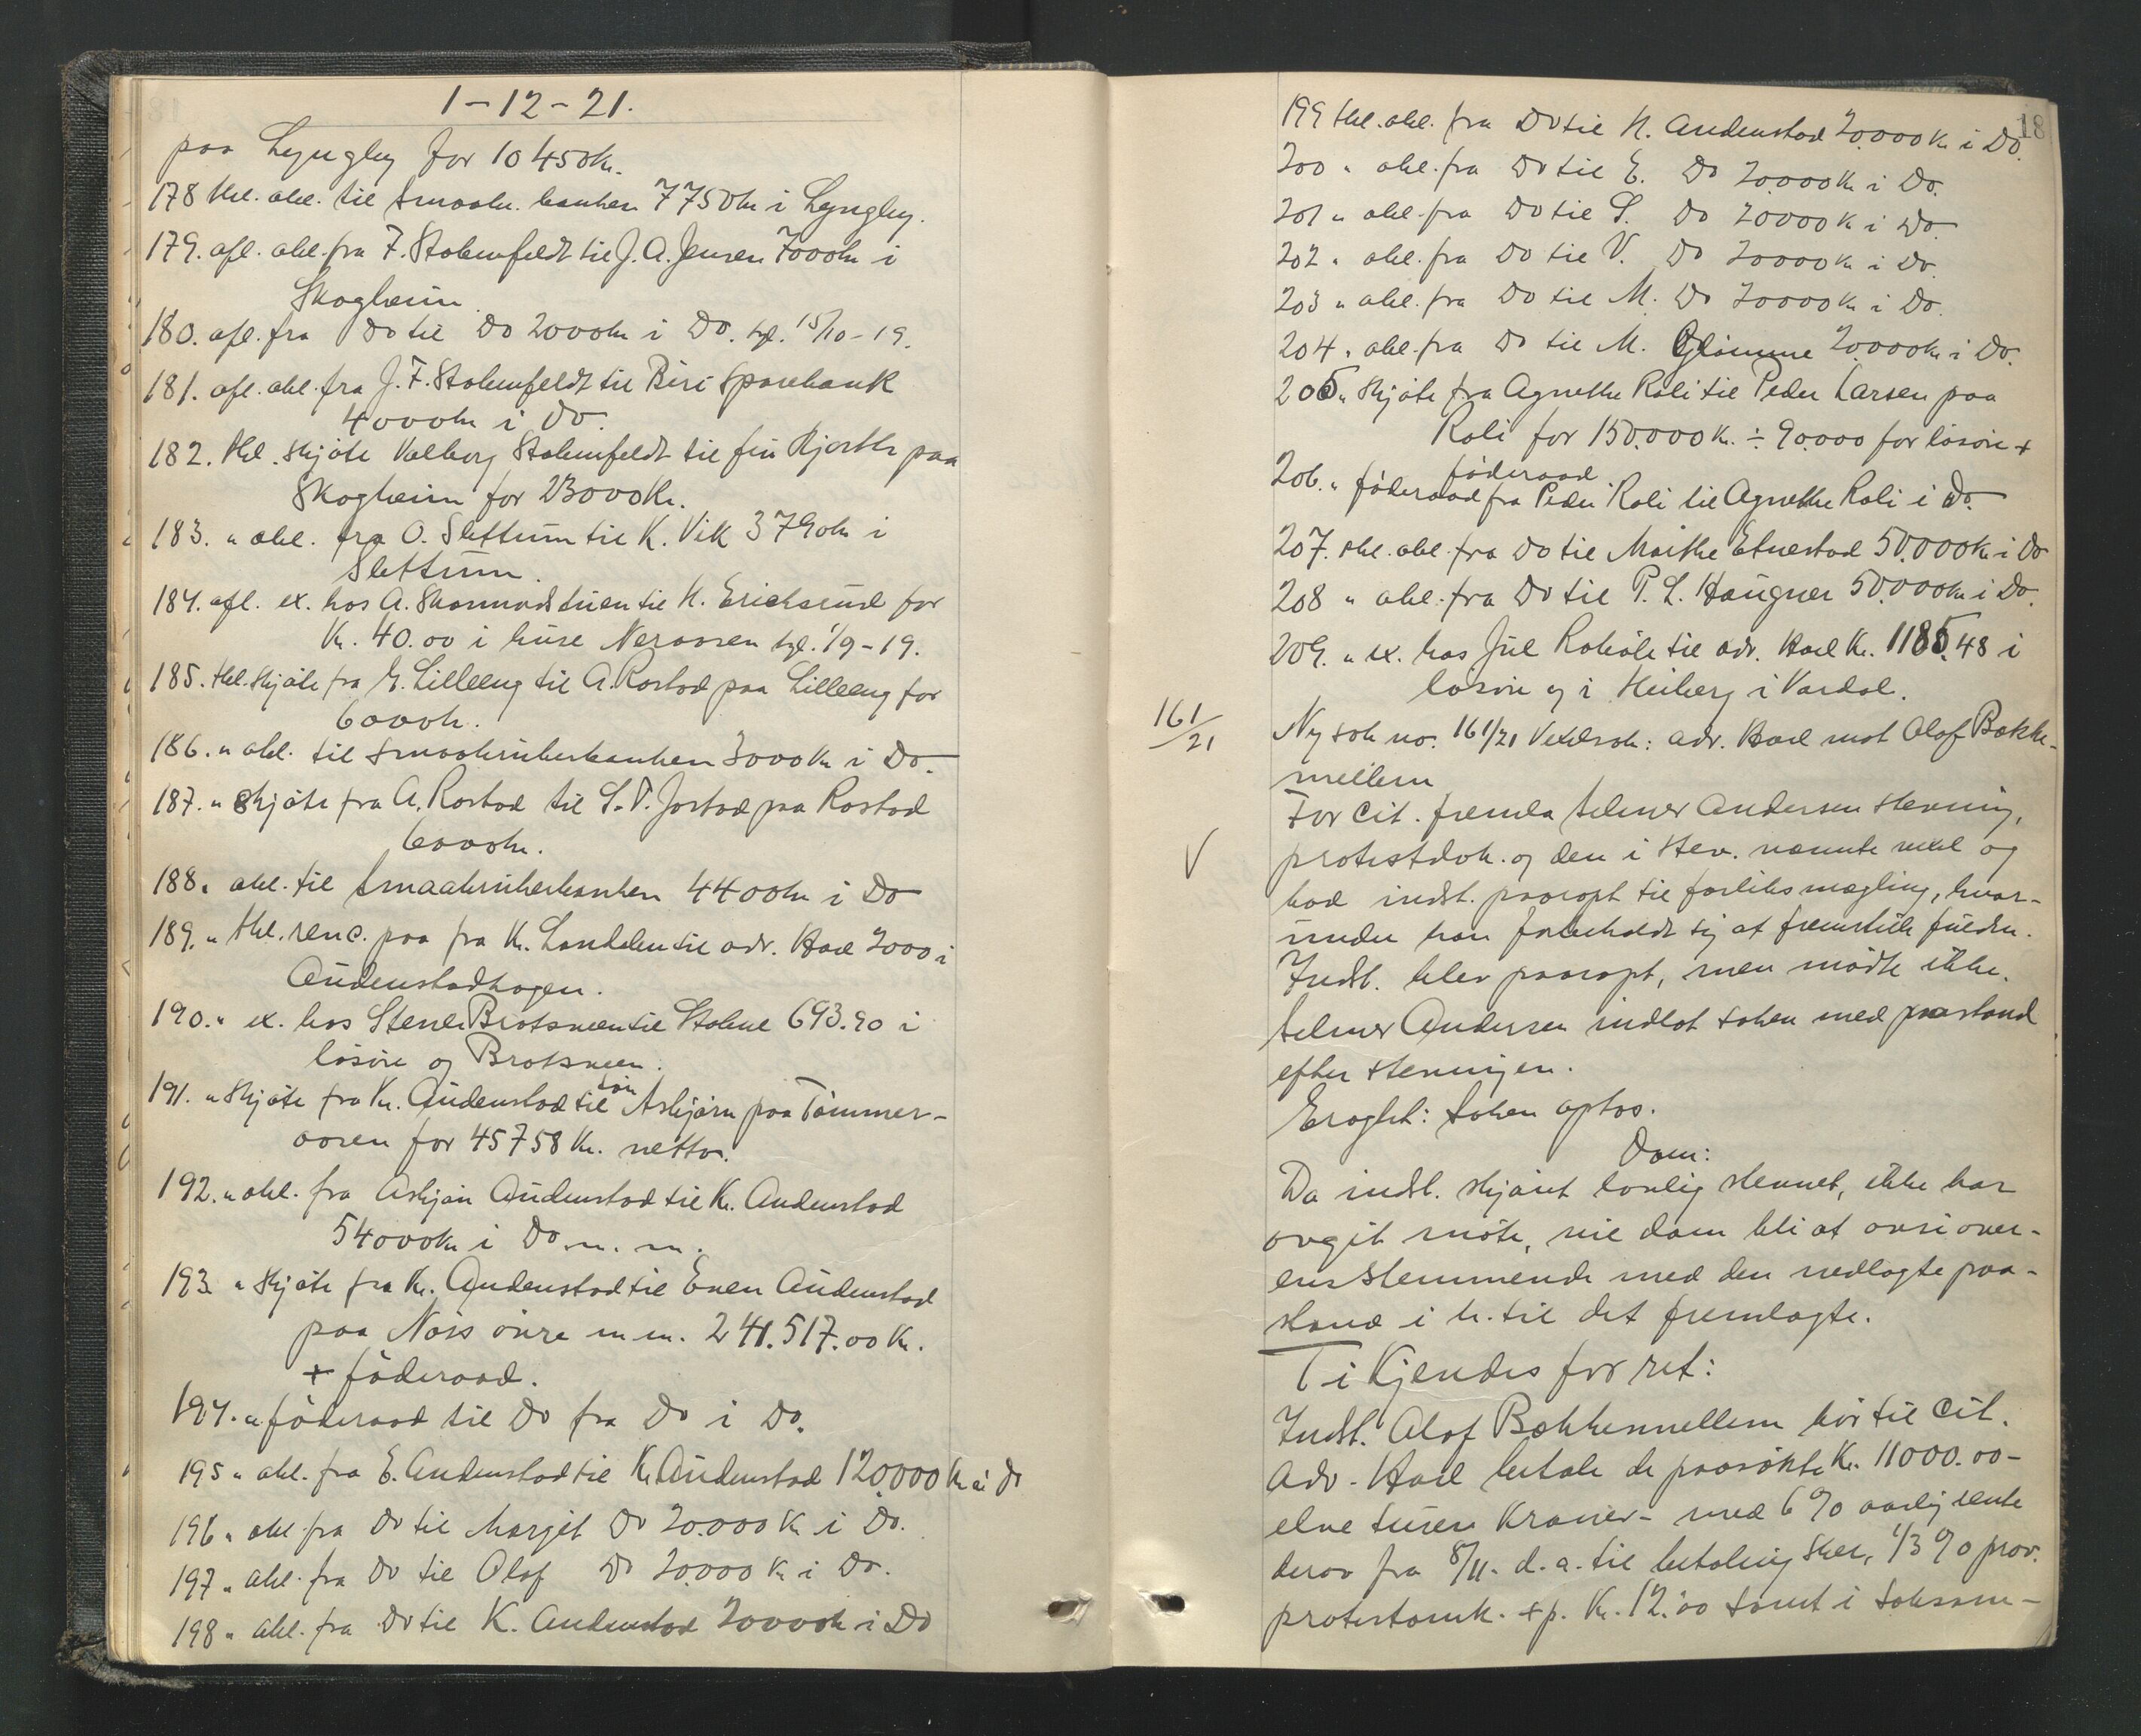 1-12-21.
paa Lyngley for 10450kr.
178 thl. obl. til Smaabr. banken 7750kr i Lyngley.
179. afl. obl. fra F. Stabenfeldt til J. A. Jensen 7000kr i
Skogheim
180. afl. fra Do til Do 2000kr i Do. tgl. 15/10-19.
181. afl. obl. fra J. F. Stabenfeldt til Biri Sparebank
4000kr i Do.
182. thl. skjöte Valborg Stabenfeldt til fru Hjorth paa
Skogheim for 23000Kr.
183. " obl. fra O. Slettum til K. Vik 3790kr i
Slettum.
184. afl. ex. hos A. til H. Ericksrud for
Kr. 40.00 i huse Neraasen tgl. 1/9-19.
185. thl. skjöte fra E. Lilleeng til A. Rostad paa Lilleeng for
6000kr.
186. " obl. til Smaabrukerbanken 3000Kr i Do.
187. " skjöte fra A. Rostad til S. P. Jostad paa Rostad
6000kr.
188. obl. til Smaabrukerbanken 4400kr i Do
189. " thl. renc. paa fra Kr. Landelen til adv. Hoel 2000 i
Audenstadhagen.
190. " ex. hos Stener Brotsveen til Stabne 693.90 i
lösöre og Brotsveen.
191. " skjöte fra Kr. Audenstad til sön Asbjörn paa Tömmer-
aasen for 45758 Kr. netto.
192. " obl. fra Asbjörn Audenstad til Kr. Audenstad
54000kr i Do m. m.
193. " skjöte fra Kr. Audenstad til Even Audenstad
paa Nöss övre m m. 241.517.00 Kr.
+ föderaad.
194. " föderaad til Do fra Do i Do.
195 " obl. fra E. Audenstad til Kr. Audenstad 120.000 Kr i Do
196 " obl fra Do til Margit Do 20.000 Kr i Do.
197 " obl. fra Do til Olaf Do 20.000 Kr i Do.
198 " obl. fra Do til K. Audenstad 20000kr i Do
18
199 thl. obl. fra Do til H. Audenstad 20.000 Kr i Do.
200 " obl. fra Do til E. Do 20.000 Kr i Do.
201 " obl. fra Do til S. Do 20000 Kr i Do.
202 " obl. fra Do til V. Do 20000 Kr i Do.
203 " obl. fra Do til M. Do 20000 Kr i Do.
204 " obl. fra Do til M. Glömme 20.000kr i Do.
205 " Skjöte fra Agnethe Roli til Peder Larsen paa
Roli for 150.000 Kr. ÷ 90.000 for lösöre +
föderaad
206. " föderaad fra Peder Roli til Agnethe Roli i Do.
207. thl. obl. fra Do til Marthe Etnestad 50.000 Kr i Do
208 " obl. fra Do til P. L. Haugner 50.000kr i Do.
209. " ex. hos Jul til adv. Hoel Kr. 1185.48 i
lösöre og i Heiberg i Vardal.
161/21
Ny sak no. 161/21 Vexelsak: adv. Hoel mot Olaf Bække-
mellem
For cit. fremla Selmer Andersen stevning,
protestdok. og den i stev. nævnte vexel og
bad indst. paaropt til forliksmægling, hvor-
under han forbeholdt sig at fremstille fuldm.
V
Indst. blev paaropt, men mödte ikke.
Selmer Andersen indlot saken med paastand
efter stevningen.
Eragtet: Saken optas.
Dom:
Da indst. skjönt lovlig stevnet, ikke har
avgit möte, vil dom bli at avsi over-
ensstemmende med den nedlagte paa-
stand i h. til det fremlagte.
Ti kjendes for ret:
Indst. Olaf Bækkemellem bör til Cit.
Adv. Hoel betale de paasökte Kr. 11000.00 -
elve tusen Kroner - med 6 % aarlig rente
derav fra 8/11. d. a. til betaling sker, 1/3 % prov.
protestomk. + p. Kr. 12.00 samt i saksom-